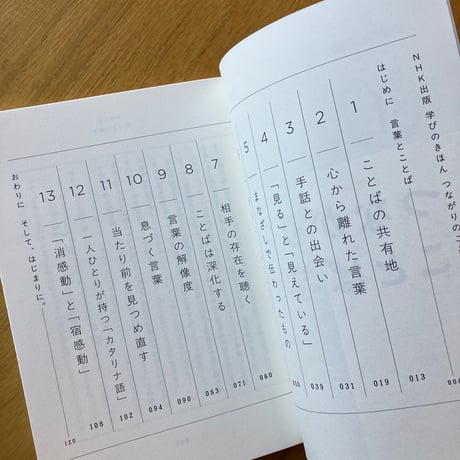 NHK出版 学びのきほん つながりのこ
はじめに 言葉とことば 004
1 ことばの共有地 013
2 心から離れた言葉 019
3 手話との出会い 031
4 「見る」と「見えている」 039
5 まなざしで伝わったもの 050
7 相手の存在を聴く 060
8 ことばは深化する 071
9 言葉の解像度 083
10 息づく言葉 090
11 当たり前を見つめ直す 094
12 一人ひとりが持つ「カタリナ語」 102
13 「消感動」と「宿感動」 108
おわりに そして、はじまりに。 120